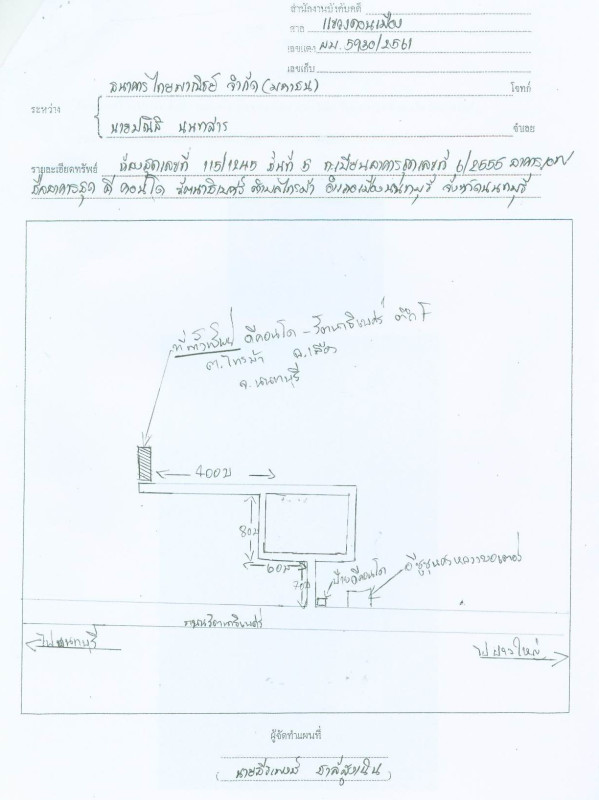 สำนักงานบังคับคดี
ศาล แขวงดอนเมือง
เลขแดง ผบ. 5930/2561
เลขเก็บ
ธนาคารไทยพาณิชย์ จำกัด (มหาชน) โจทก์
ระหว่าง
นาย นนทสาร จำเลย
รายละเอียดทรัพย์ ห้องชุดเลขที่ 115/1245 ชั้นที่ 5 ทะเบียนอาคารชุดเลขที่ 6/2555 อาคาร
ชื่ออาคารชุด ดี คอนโด รัตนาธิเบศร์ ตำบลไทรม้า อำเภอเมืองนนทบุรี จังหวัดนนทบุรี
ที่ตั้งทรัพย์ ดีคอนโด - รัตนาธิเบศร์ ตึก F
ต.ไทรม้า อ.เมือง
จ.นนทบุรี
400 ม
80 ม
60 ม
70 ม
ป้ายดีคอนโด
อีซูซุ
ถนนรัตนาธิเบศร์
ไปนนทบุรี
ไปบางใหญ่
ผู้จัดทำแผนที่